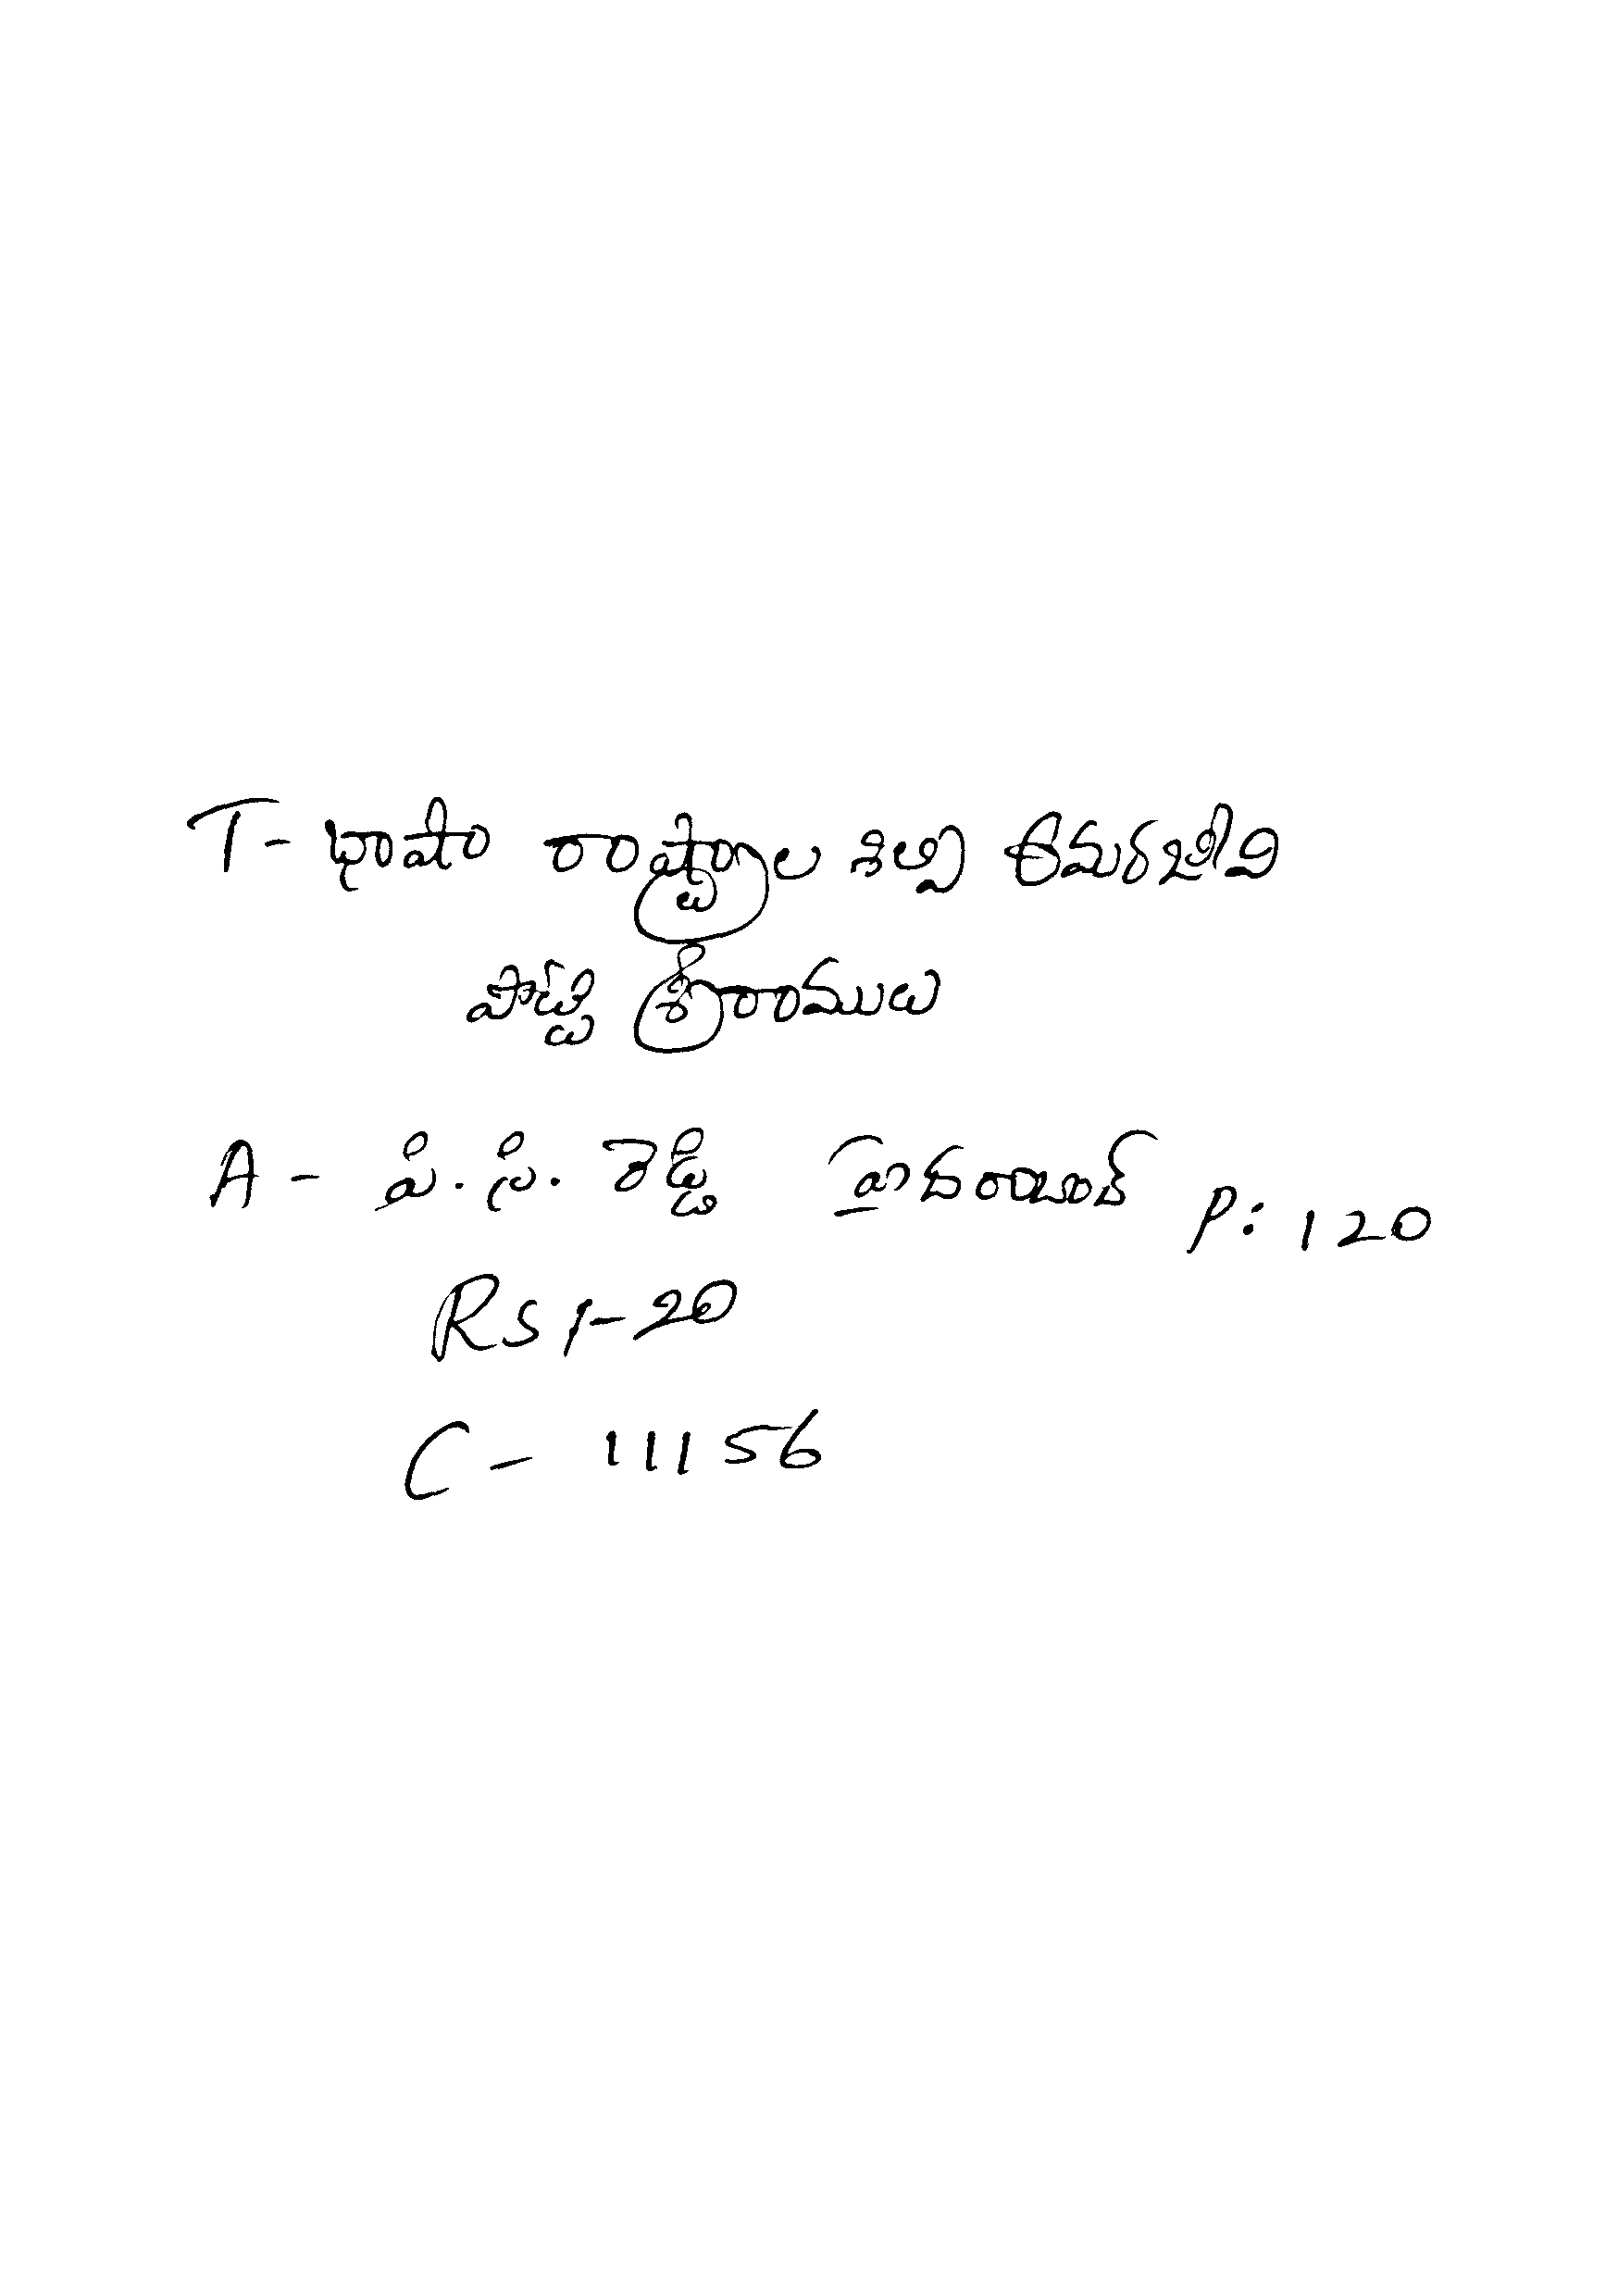 T- భాషా రాష్ట్రాల శిల్పి అమరజీవి
పొట్టి శ్రీరాములు
A - పి. సి. రెడ్డి హైదరాబాద్ P: 120
RS 1-20
C - 11156